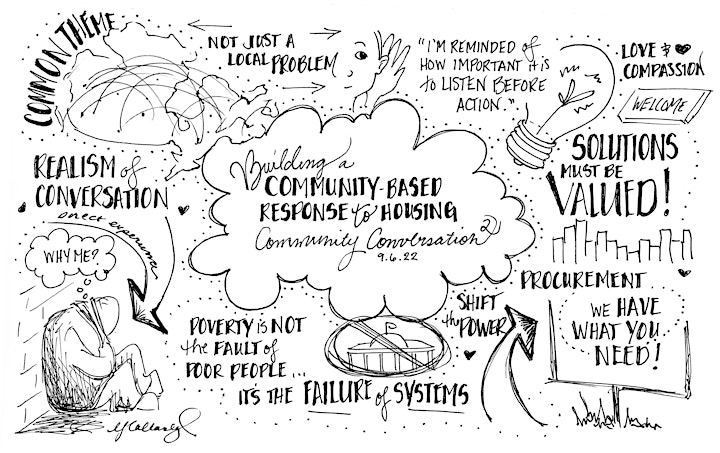 COMMON THEME
NOT JUST A
LOCAL PROBLEM
"I'M REMINDED of
HOW IMPORTANT it is
to LISTEN BEFORE
ACTION."
LOVE &
COMPASSION
WELCOME
Building a
COMMUNITY-BASED
RESPONSE to HOUSING
Community Conversation 2
9.6.22
SOLUTIONS
MUST BE
VALUED!
REALISM of
CONVERSATION
Direct experience
WHY ME?
POVERTY is NOT
the FAULT of
POOR PEOPLE...
IT'S THE FAILURE of SYSTEMS
SHIFT
the POWER
PROCUREMENT
WE HAVE
WHAT YOU
NEED!